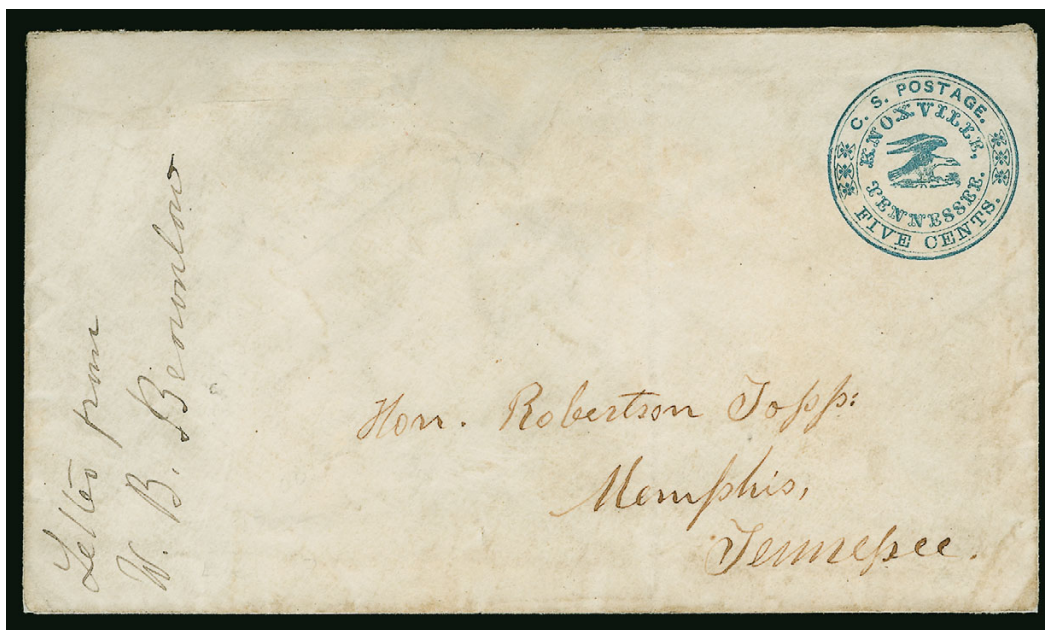 C. S. POSTAGE.
KNOXVILLE,
TENNESSEE.
FIVE CENTS.
Letter from
W. B. Brownlow
Hon. Robertson Topp:
Memphis,
Tennessee.